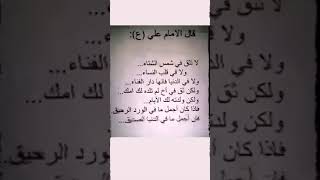 قال الامام علي (ع):
لا تثق في شمس الشتاء...
ولا في قلب النساء...
ولا في الدنيا فانها دار الفناء...
ولكن ثق في أخ لم تلده لك امك...
ولكن ولدته لك الايام..
فاذا كان اجمل ما في الورد الرحيق
فان أجمل ما في الدنيا الصديق...